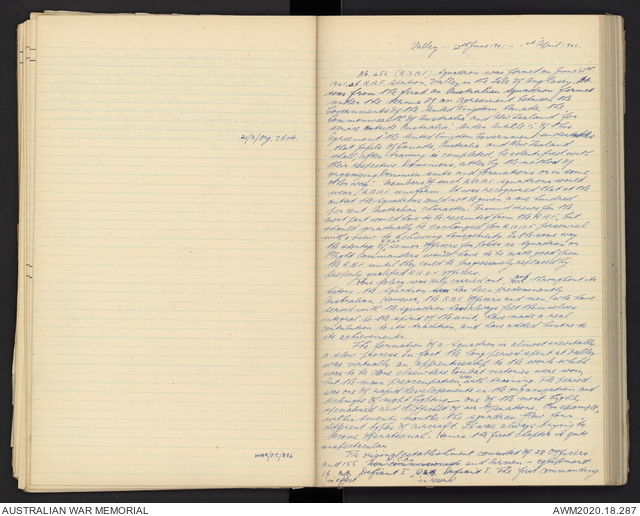 21/2/Org. 7 Feb.
WAR/72/226
Valley — 20th June 1941 — 1st April 1942.
No. 456 (R.A.A.F.) Squadron was formed on June
1941 at R.A.F. Station, Valley in the Isle of Anglesey. It
was from the first an Australian squadron formed
under the terms of an agreement between the
Governments of the United Kingdom, Canada, the
Commonwealth of Australia and New Zealand for
service outside Australia. Under Article 15 of this
agreement the United Kingdom Government undertakes
that pupils of Canada, Australia and New Zealand
shall, after training is completed, be identified with
their respective Dominions, either by the method of
organising Dominion units and formations or in some
other way. Members of such R.A.A.F. squadrons would
wear R.A.A.F. uniform. It was recognised that at the
outset the squadrons could not be given a one hundred
per cent Australian character. Ground crews for the
most part would have to be recruited from the R.A.F., but
should gradually be exchanged for R.A.A.F. personnel
with a view to achieving homogeneity. In the same way
the shortage of senior officers for jobs as squadron or
flight commanders would have to be made good from
the R.A.F. until they could be progressively replaced by
properly qualified R.A.A.F. officers.
This policy was duly carried out, and throughout its
history the squadron has been predominantly
Australian. However, the R.A.F. officers and men, who have
served with the squadron have always felt themselves
integral to the spirit of the unit, have made a real
contribution to its tradition, and have added lustre to
its achievements.
The formation of a squadron is almost inevitably
a slow process. In fact the long period spent at Valley
was virtually an apprenticeship to the work which
was to be done elsewhere. Combat victories were won
but the main preoccupation was training. The period
was one of rapid developments in the organisation and
technique of night fighting — one of the most highly
specialised and difficult of air operations. For example,
within twenty months the squadron flew four
different types of aircraft. It was always trying to
become operational. Hence the first chapter is quite
unspectacular.
The original establishment consisted of 28 Officers
and 155 N.C.Os and airmen — equipment
16 Defiant I, Defiant I. The first commanding
in reserve